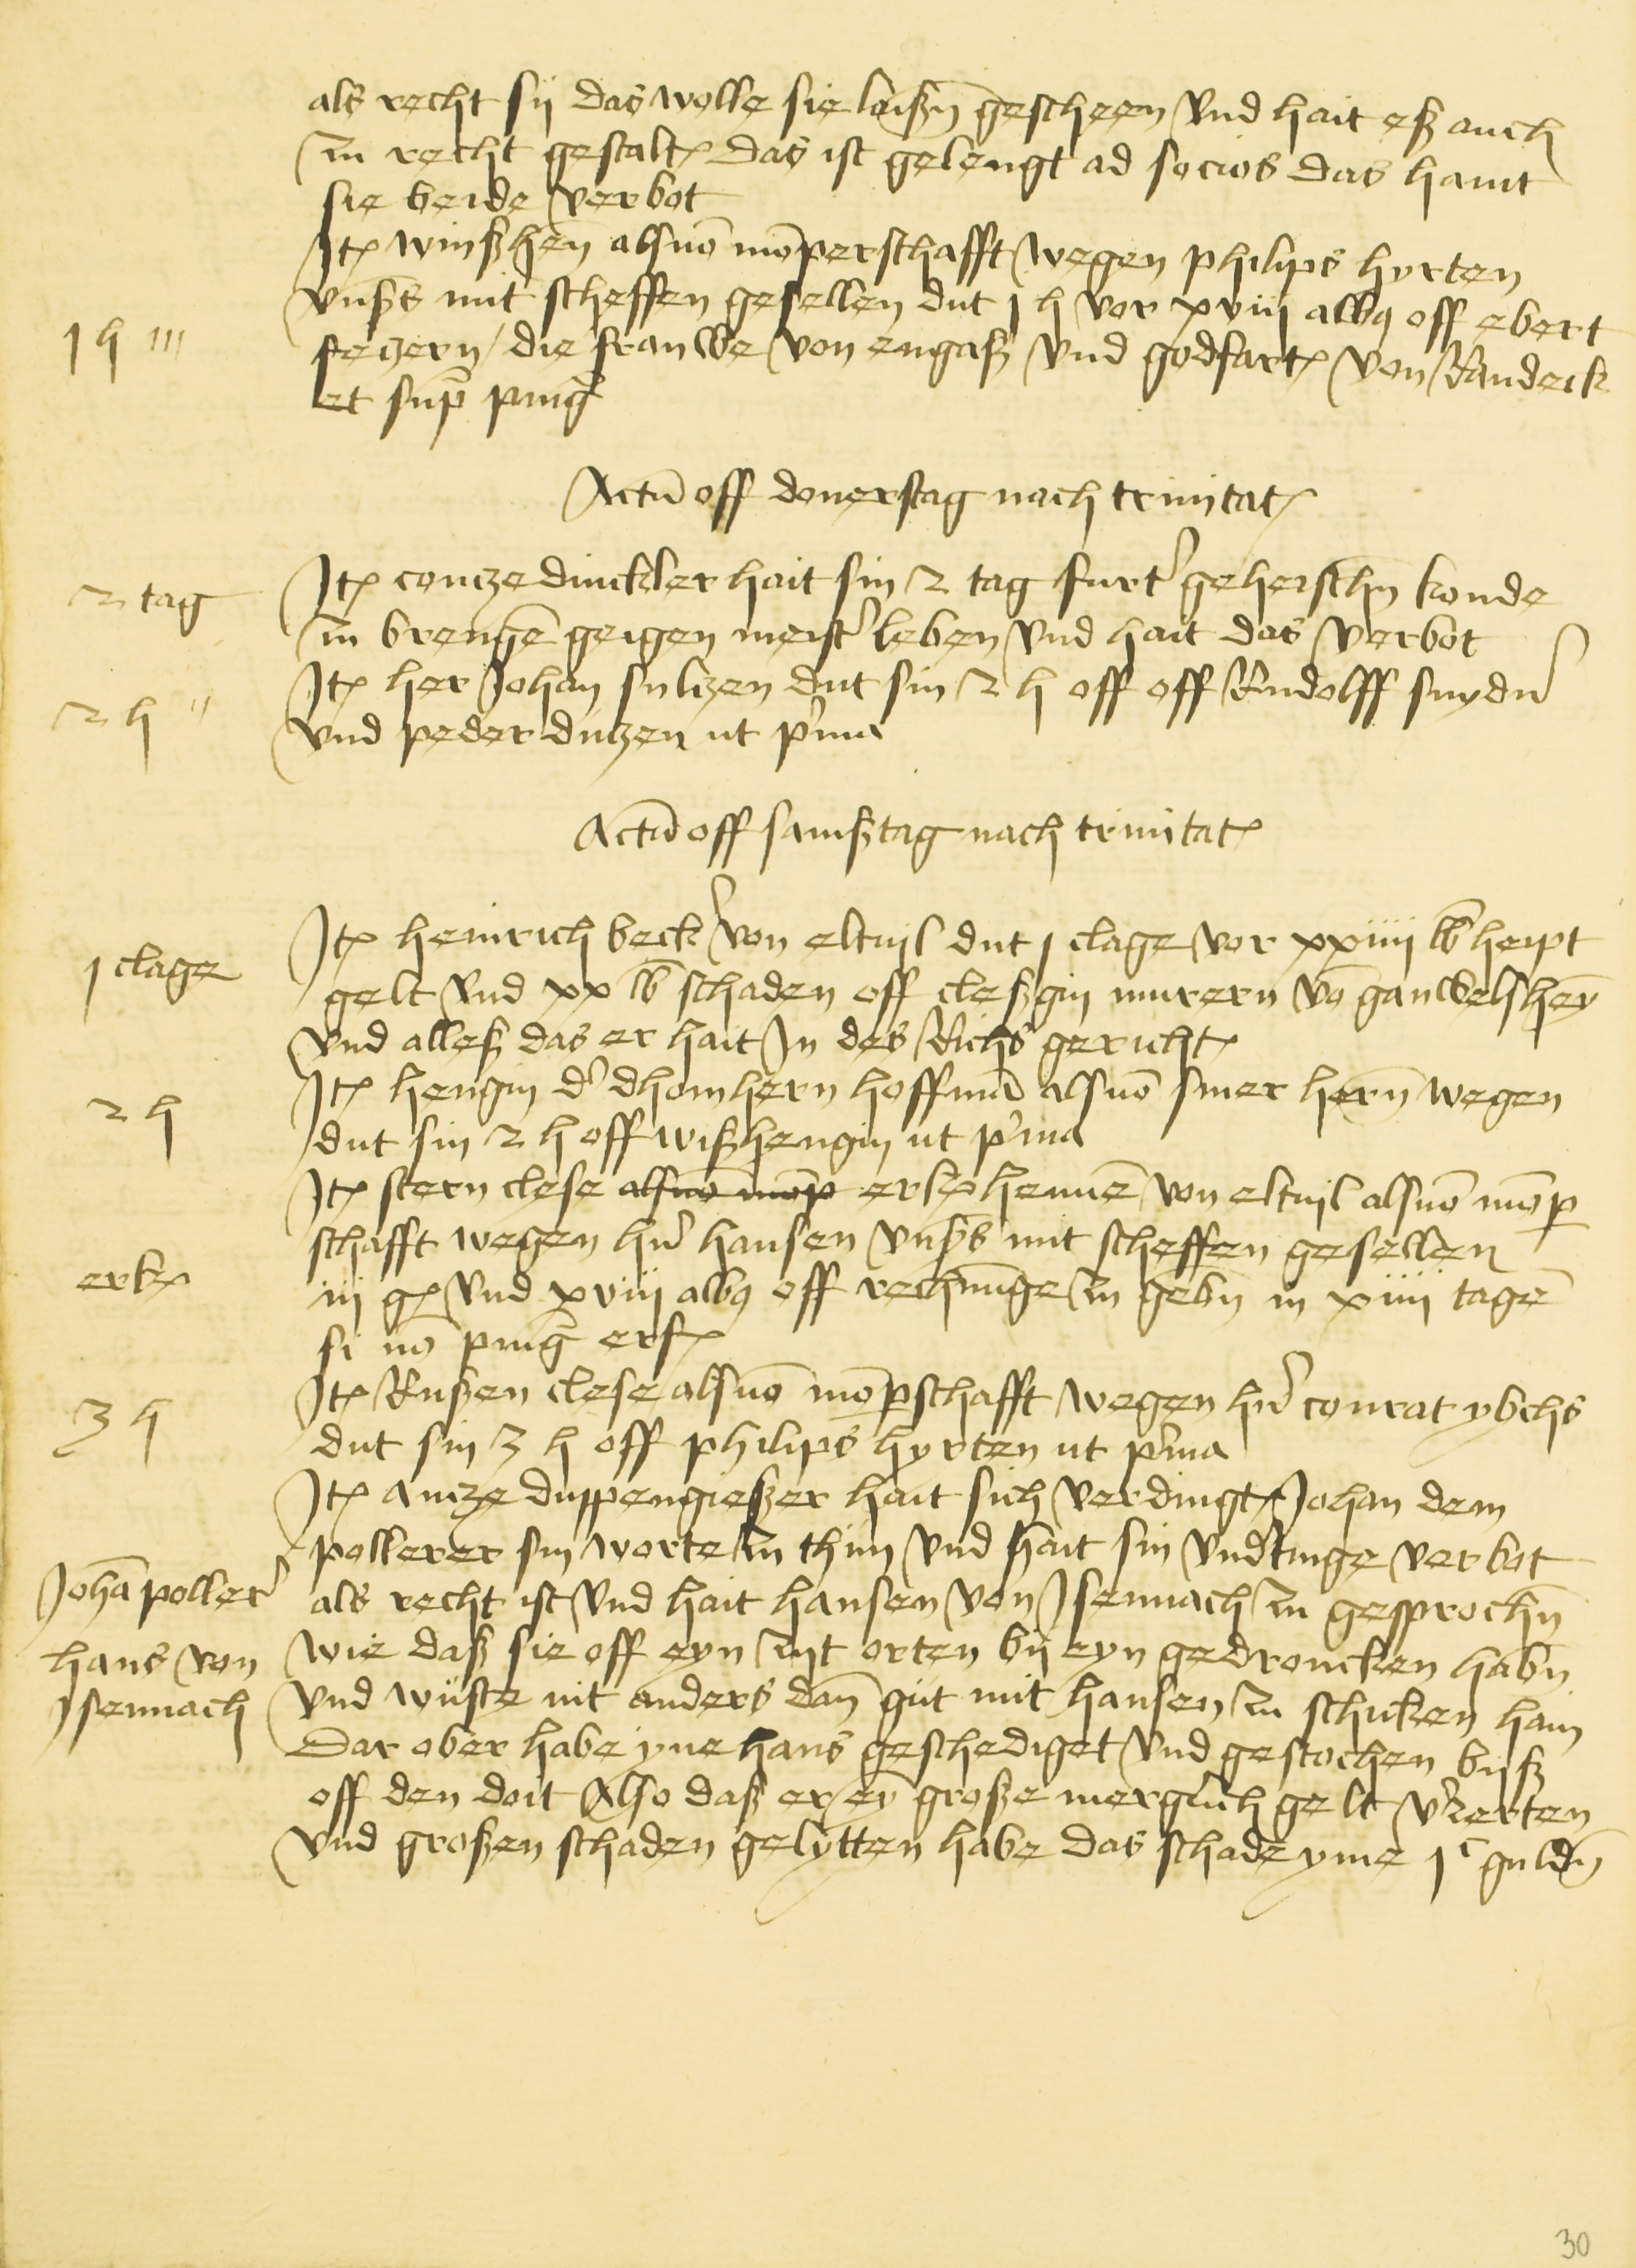 als recht sij das wolle sie laißn̄ gescheen vnd hait eß auch
zu recht gestalt das ist gelengt ad socios das hant
sie beide verbot
Itꝫ winßhen̄ alsuō mōperschafft wegen philips hyrten
vnß̉s mit scheffen gesellen dut j h vor xviij albꝫ off ebert
j h ///
feczern / die frauwe von engaß vnd godfart von Randeck
et sup̄ pīng̉
Actū off donerstag nach trinitatꝭ
2 tag
Itꝫ contze dinckler hait sin 2 tag furt̉ geheischn̄ konde
zu brengē geigen meist̉ leben vnd hait das verbot
Itꝫ her Johan sultzen dut sin 2 h off off Rudolff snyd̉n
2 h //
vnd peder dutzen ut p̉ma
Actū off samßtag nach trinitatꝭ
Itꝫ heinrich beck̉ von eltuil dut j clage vor xxiiij lb̄ heipt
j clage
gelt vnd xx lb̄ schaden off cleßgin murern vō gauwelßheȳ
vnd alleß das er hait In des Richs gericht
Itꝫ hengin d̉ dhomhern hoffmā alsuō siner hern̄ wegen
2 h
dut sin 2 h off wißhengin ut p̉ma
Itꝫ stern clese alsuō mōp erkꝭ hennē von eltuil alsuō mōp
schafft wegen h̉n hansen vnß̉s mit scheffen gesellen
erkꝭ
iij gꝭ vnd xviij albꝫ off rechnūge zu gebn̄ in xiiij tagē
si nō pīng̉ erfꝭ
Itꝫ Rußen clese alsuō mōpschafft wegen h̉n conrat ybchs
3 h
dut sin 3 h off philips hyrten ut p̉ma
Itꝫ antze duppengießer hait sich verdingt Johan dem
pollerer sin worte zu thun vnd hait sin vnd̉tinge verbot
Johā poller̉
als recht ist vnd hait hansen von Isennach zu gesprochn̄
hans von
wie daß sie off eyn zyt orten bij eyn gedroncken habn̄
Isennach
vnd wuste nit anders dan̄ gut mit hansen zu schicken hain
Dar ober habe yne hans geschediget vnd gestochen bijß
off den doit Also daß er eȳ große mergliich gelt v̉zerten
vnd großen schaden gelytten habe das schade yme jᶜ guldn̄
30